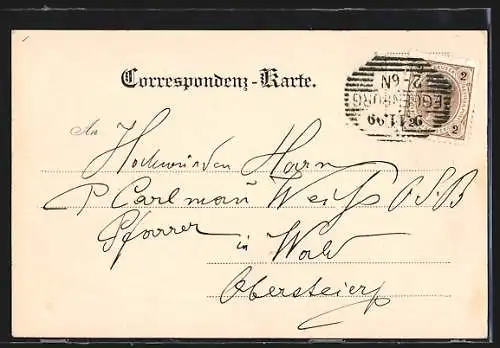 Correspondenz-Karte.
2
2
EGGENBURG
2-6N
An
Hochwürden Herrn
P Carlmann Weiß O.S.B
Pfarrer
in Wald
Obersteierm